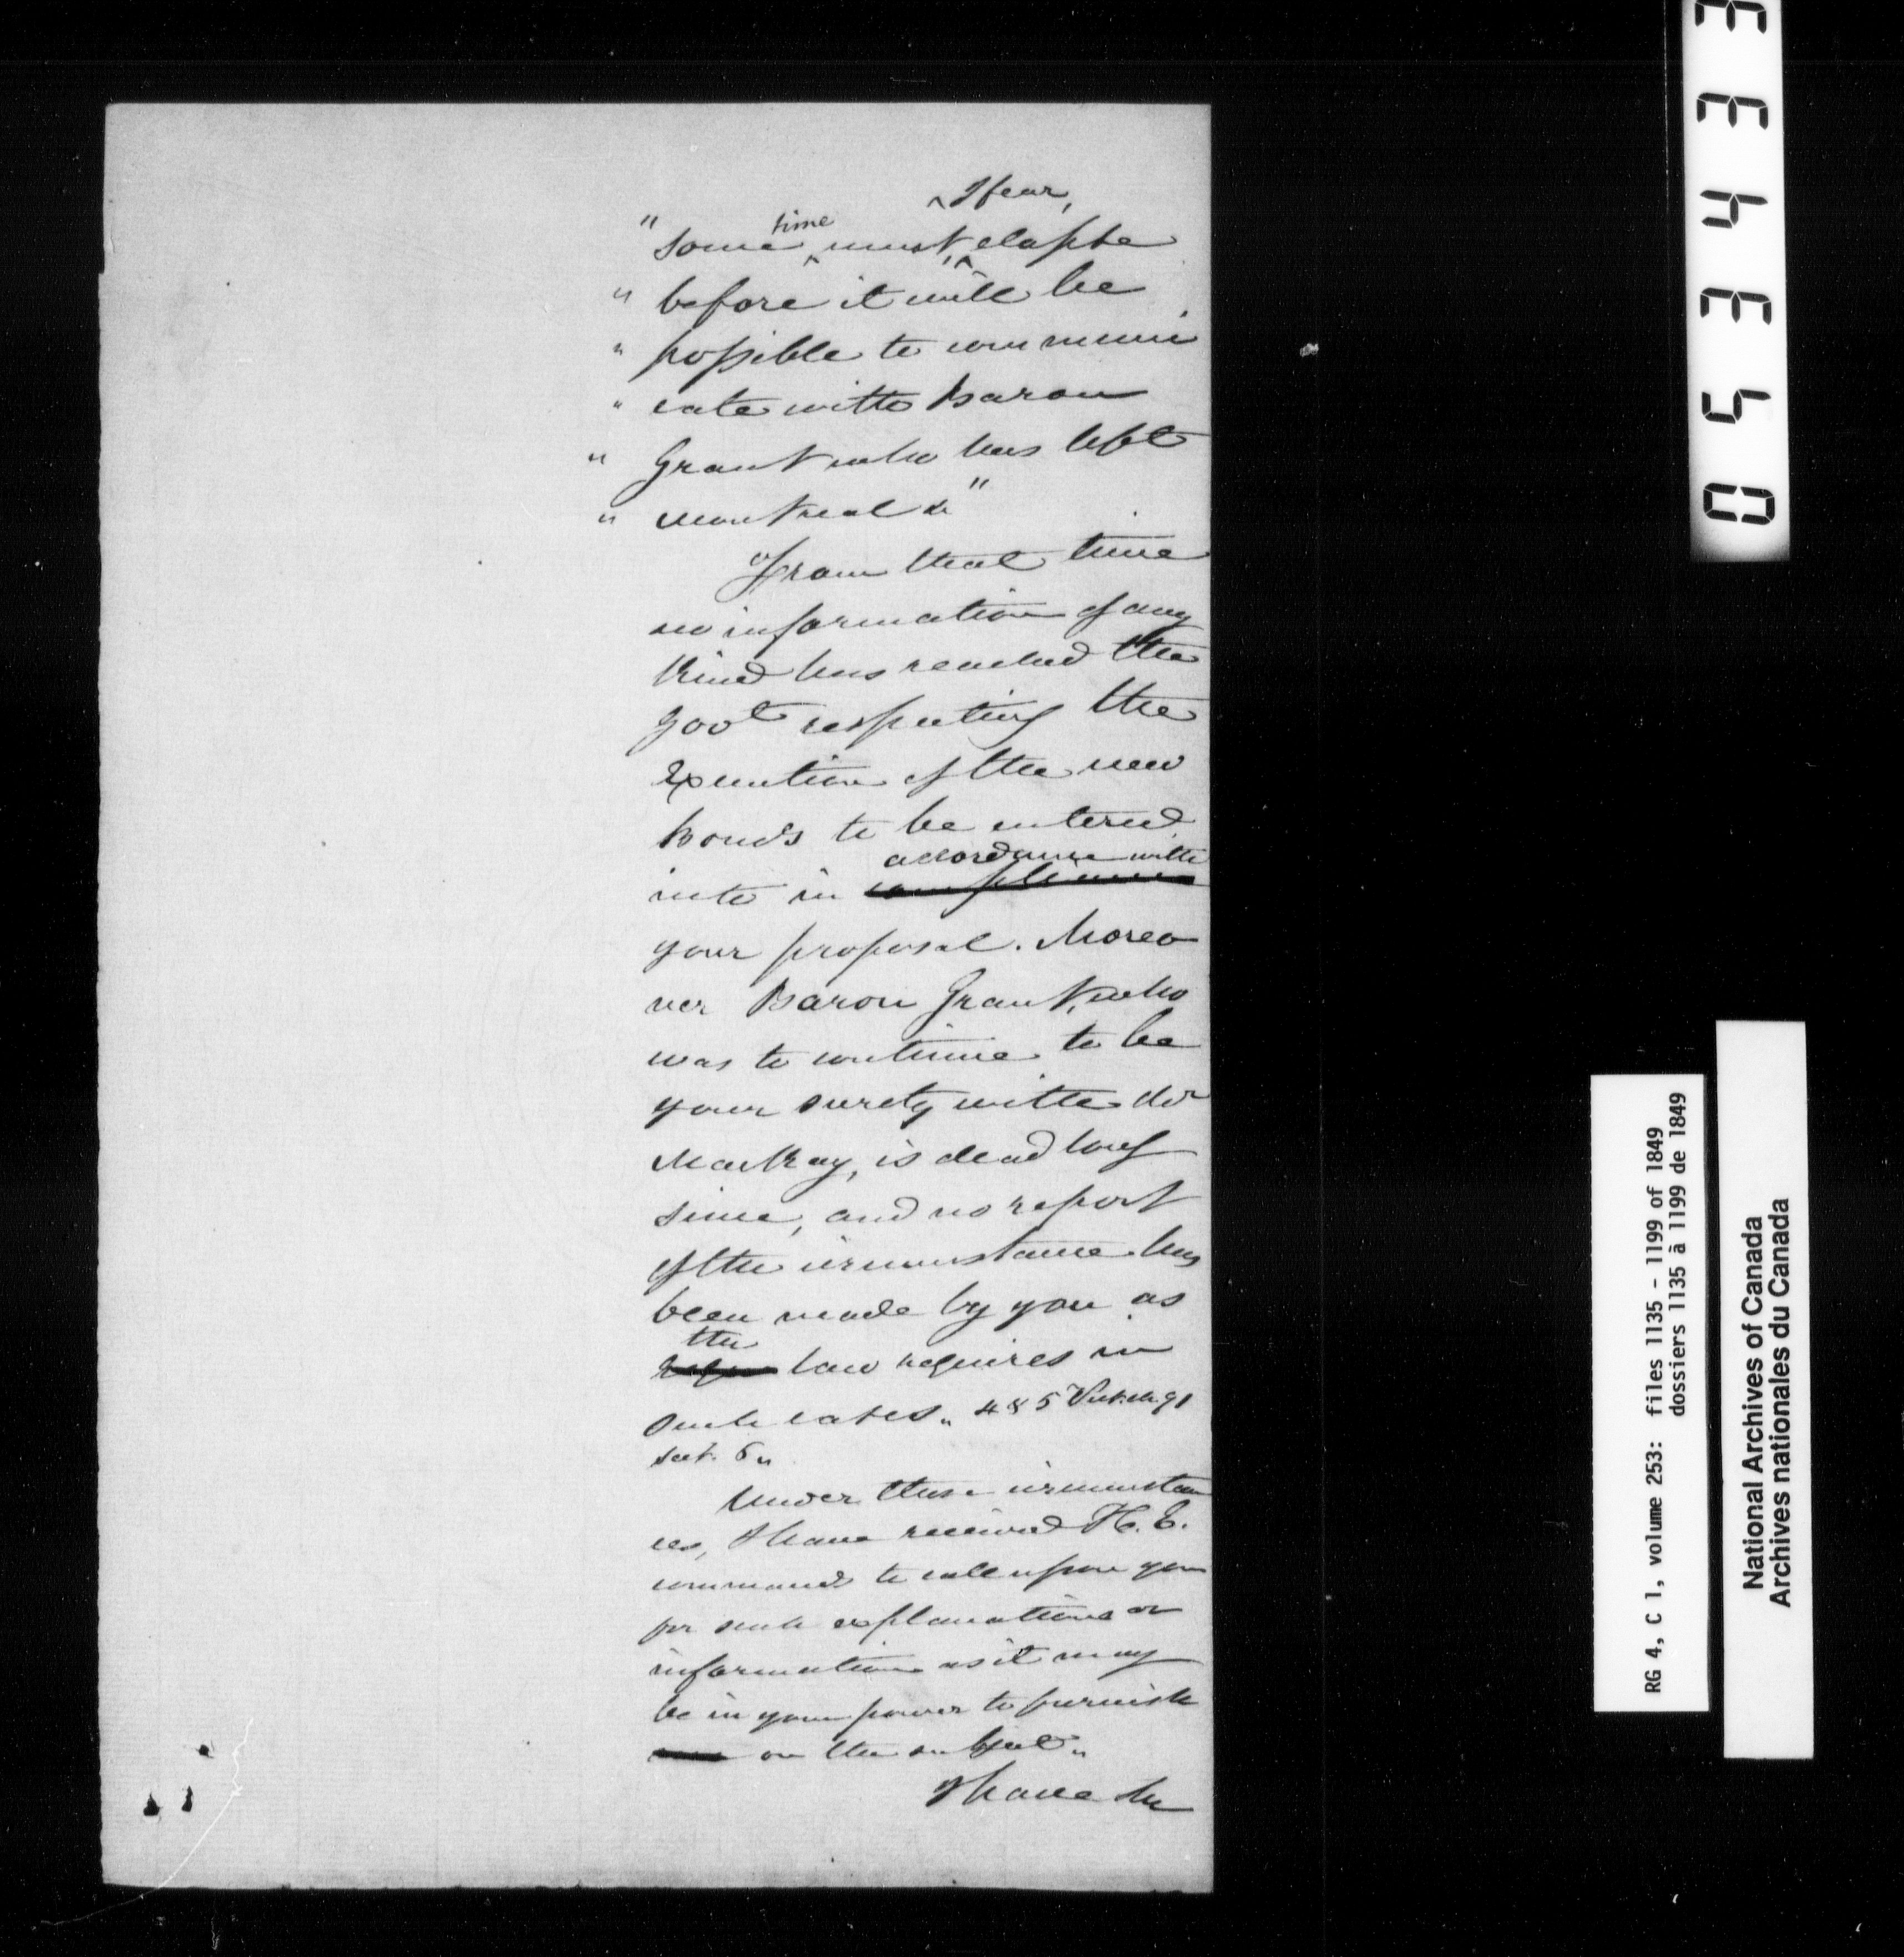 " some time must, I fear, elapse
" before it will be
" possible to communi
" cate with Baron
" Grant who has left
" Montreal &"
From that time
no information of any
kind has reached the
Govt respecting the
Execution of the new
bonds to be entered
into in compliance accordance with
your proposal. Moreo
ver Baron Grant, who
was to continue to be
your surety with Mr
MacKay, is dead long
since, and no report
of the circumstance has
been made by you as
the law requires in
such cases. 4 & 5 Vict. ch. 91
sect. 6
Under these circumstan
ces, I have received H. E.
commands to call upon you
for such explanations or
information as it may
be in your power to furnish
on the subject.
I have &c
0 5 4 3 4 3 3
RG 4, C 1, volume 253: files 1135 - 1199 of 1849
dossiers 1135 à 1199 de 1849
National Archives of Canada
Archives nationales du Canada